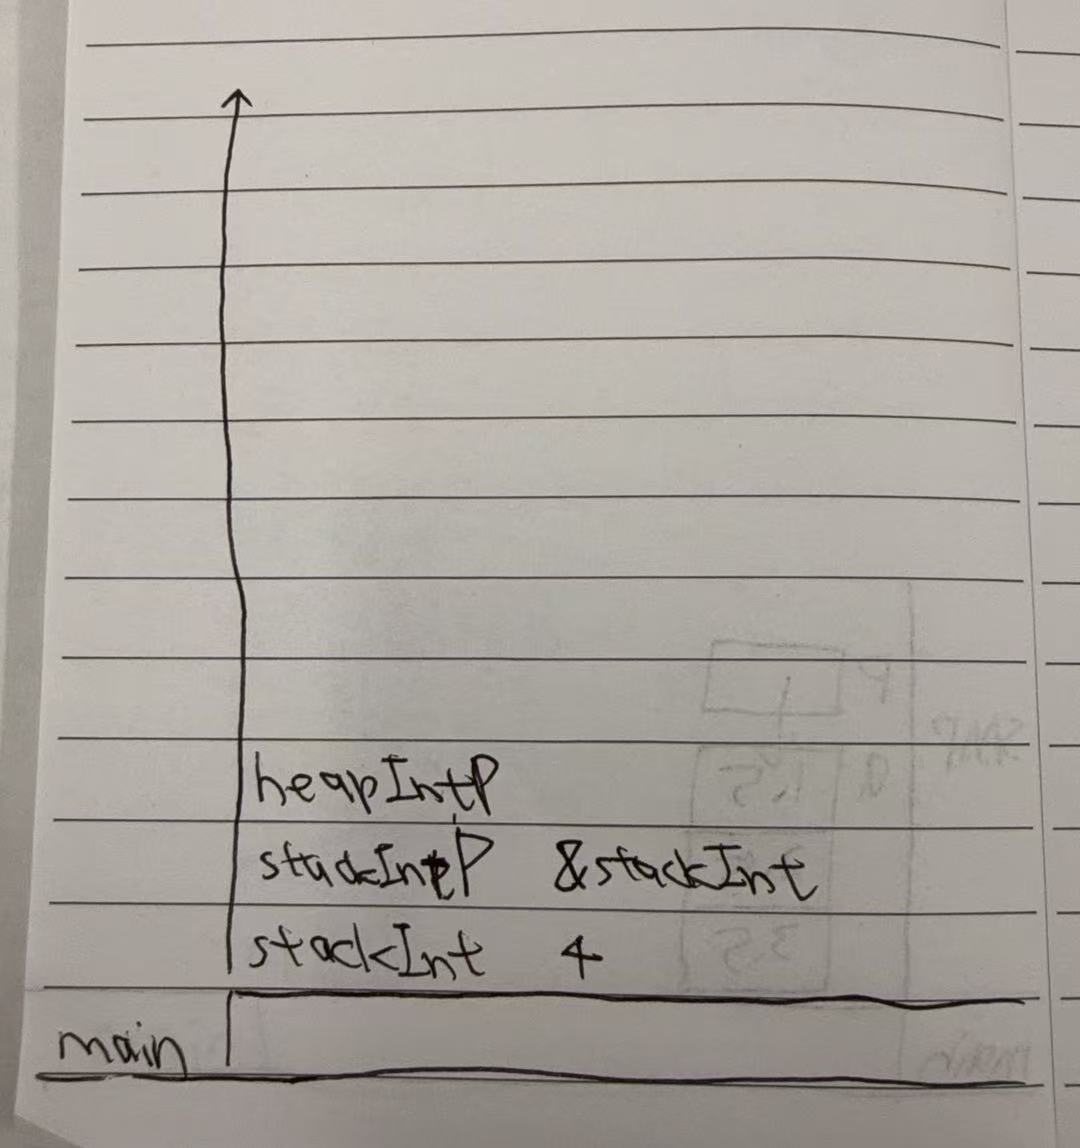 heapIntP
stackIntP &stackInt
stackInt 4
main